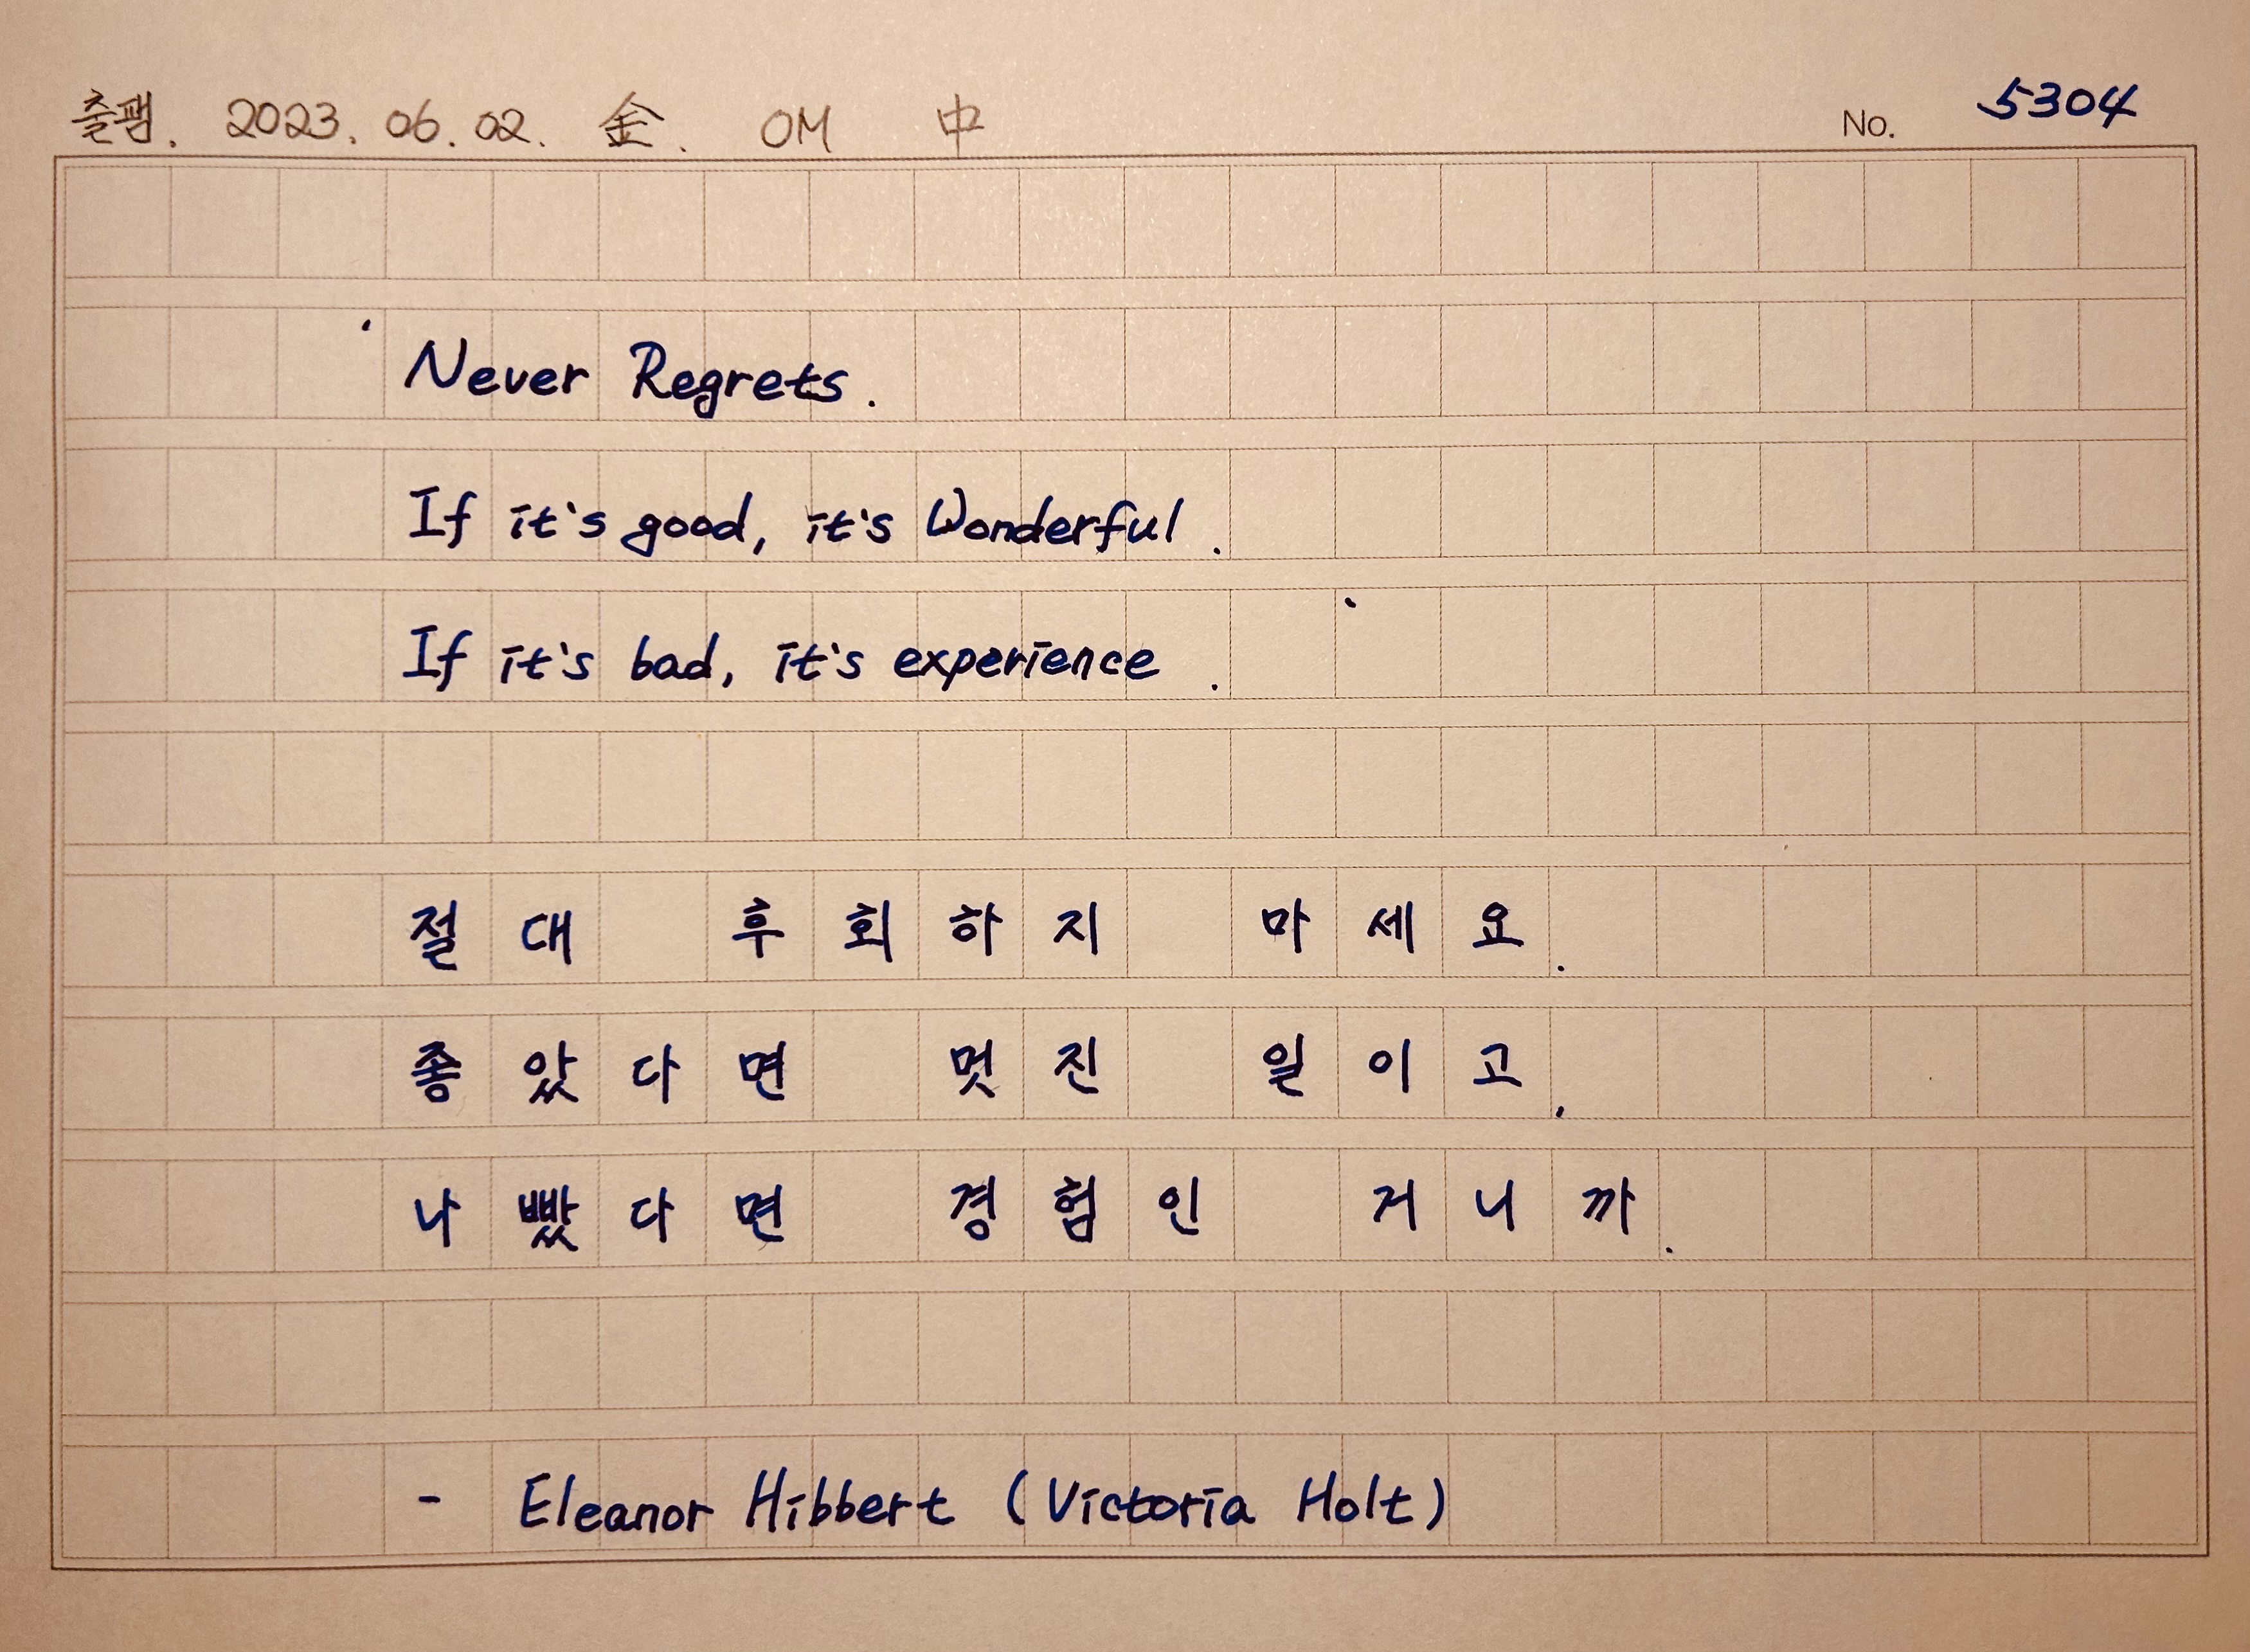 출팸. 2023. 06. 02. 金. OM 中 No. 5304
Never Regrets.
If it's good, it's Wonderful.
If it's bad, it's experience.
절대 후회하지 마세요.
좋았다면 멋진 일이고,
나빴다면 경험인 거니까.
- Eleanor Hibbert (Victoria Holt)